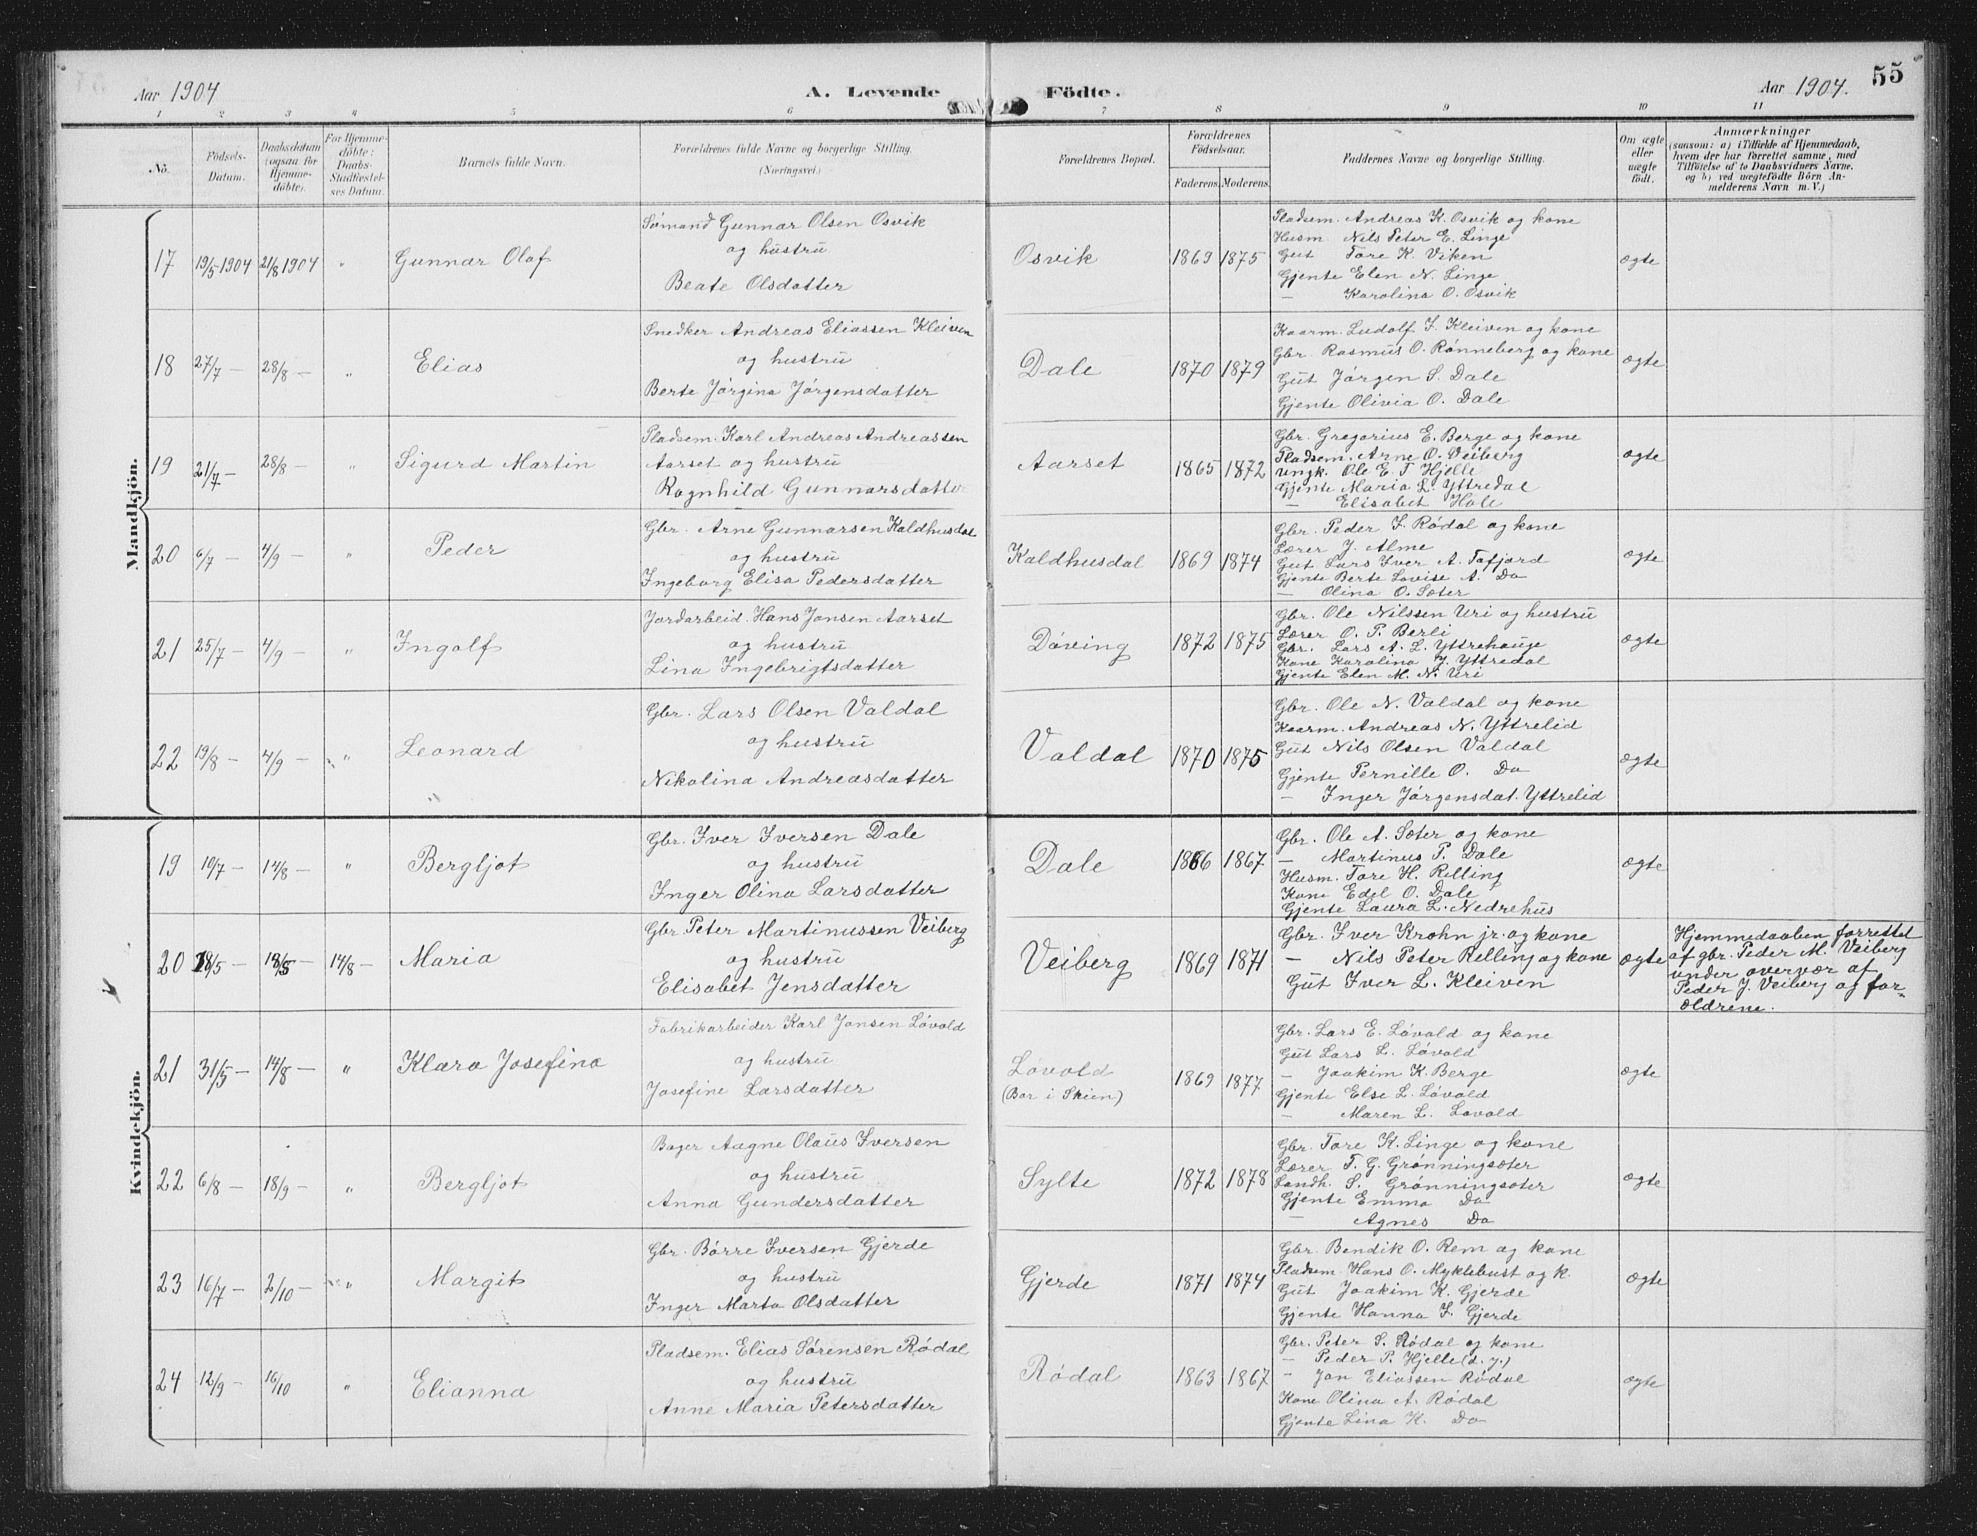 Aar 1904 A. Levende Födte. Aar 1904. 55
1 2 3 4 5 6 7 8 9 10 11
No.
Födsels-Datum.
Daabsdatum (ogsaa for Hjemmedöbte).
For Hjemmedöbte: Daabs-Stadfæstelses Datum.
Barnets fulde Navn.
Forældrenes fulde Navne og borgerlige Stilling. (Næringsvei)
Forældrenes Bopæl.
Forældrenes Födselsaar.
Faderens. Moderens.
Faddernes Navne og borgerlige Stilling.
Om ægte eller uægte födt.
Anmærkninger
(saasom: a) i Tilfælde af Hjemmedaab,
hvem der har forrettet samme, med
Tilföielse af to Daabsvidners Navne,
og b) ved uægtefödte Börn An-
melderens Navn m. V.)
Mandkjön.
17 19/5 1904 21/8 1904 " Gunnar Olaf
Sømand Gunnar Olsen Osvik
og hustru
Beate Olsdatter
Osvik 1869 1875
Pladsem. Andreas K. Osvik og kone
Husm. Nils Peter E. Linge
Gut Tore K. Viken
Gjente Elen N. Linge
— Karolina O. Osvik
ægte
18 27/7 — 28/8 — " Elias
Snedker Andreas Eliassen Kleiven
og hustru
Berte Jørgina Jørgensdatter
Dale 1870 1879
Kaarm. Ludolf I. Kleiven og kone
Gbr. Rasmus O. Rønneberg og kone
Gut Jørgen S. Dale
Gjente Olivia O. Dale
ægte
19 21/7 — 28/8 — " Sigurd Martin
Pladsem. Karl Andreas Andreassen
Aarset og hustru
Ragnhild Gunnarsdatter
Aarset 1865 1872
Gbr. Gregorius E. Berge og kone
Pladsem. Arne O. Veiberg
Ungk. Ole E. T. Hjelle
Gjente Maria L. Yttredal
— Elisabet Hole
ægte
20 6/7 — 4/9 — " Peder
Gbr. Arne Gunnarsen Kaldhusdal
og hustru
Ingeborg Elisa Pedersdatter
Kaldhusdal 1869 1874
Gbr. Peder I. Rødal og kone
Lærer J. Alme
Gut Lars Iver A. Tafjord
Gjente Berte Lovise A. Do
— Olina O. Sæter
ægte
21 25/7 — 4/9 — " Ingolf
Jordarbeid. Hans Jonsen Aarset
og hustru
Lina Ingebrigtsdatter
Døving 1872 1875
Gbr. Ole Nilssen Uri og hustru
Lærer O. P. Berli
Gbr. Lars A. L. Yttrehauge
Kone Karolina J. Yttredal
Gjente Elen M. N. Uri
ægte
22 19/8 — 4/9 — " Leonard
Gbr. Lars Olsen Valdal
og hustru
Nikolina Andreasdatter
Valdal 1870 1875
Gbr. Ole N. Valdal og kone
Kaarm. Andreas N. Yttrelid
Gut Nils Olsen Valdal
Gjente Pernille O. Do
— Inger Jørgensdat. Yttrelid
ægte
Kvindekjön.
19 19/7 — 14/8 — " Bergljot
Gbr. Iver Iversen Dale
og hustru
Inger Olina Larsdatter
Dale 1866 1867
Gbr. Ole A. Sæter og kone
— Martinus P. Dale
Husm. Tore H. Relling
Kone Edel O. Dale
Gjente Laura L. Nedrehus
ægte
20 18/5 — 18/5 — 14/8 — Maria
Gbr Peter Martinussen Veiberg
og hustru
Elisabet Jensdatter
Veiberg 1869 1871
Gbr. Iver Krohn jr. og kone
— Nils Peter Relling og kone
Gut Iver L. Kleiven
ægte
Hjemmedaaben forrettet
af gbr. Peder M. Veiberg
under overvær af
Peder J. Veiberg og for-
ældrene.
21 31/5 — 14/8 — " Klara Josefina
Fabrikarbeider Karl Jonsen Løvold
og hustru
Josefine Larsdatter
Løvold
(Bor i Skien)
1869 1877
Gbr. Lars E. Løvold og kone
Gut Lars L. Løvold
— Joakim K. Berge
Gjente Else L. Løvold
— Maren L. Løvold
ægte
22 6/8 — 18/9 — " Bergljot
Bager Aagne Olaus Iversen
og hustru
Anna Gundersdatter
Sylte 1872 1878
Gbr. Tore K. Linge og kone
Lærer T. G. Grønningsæter
Landh. S. Grønningsæter
Gjente Emma Do
— Agnes Do
ægte
23 16/7 — 2/10 — " Margit
Gbr. Børre Iversen Gjerde
og hustru
Inger Marta Olsdatter
Gjerde 1871 1874
Gbr. Bendik O. Rem og kone
Pladsem. Hans O. Myklebust og k.
Gut Joakim K. Gjerde
Gjente Hanna I. Gjerde
ægte
24 12/9 — 16/10 " Elianna
Pladsem. Elias Sørensen Rødal
og hustru
Anne Maria Petersdatter
Rødal 1863 1867
Gbr. Peter S. Rødal og kone
— Peder P. Hjelle (d. y.)
— Jon Eliassen Rødal
Kone Olina A. Rødal
Gjente Lina K. Do
ægte